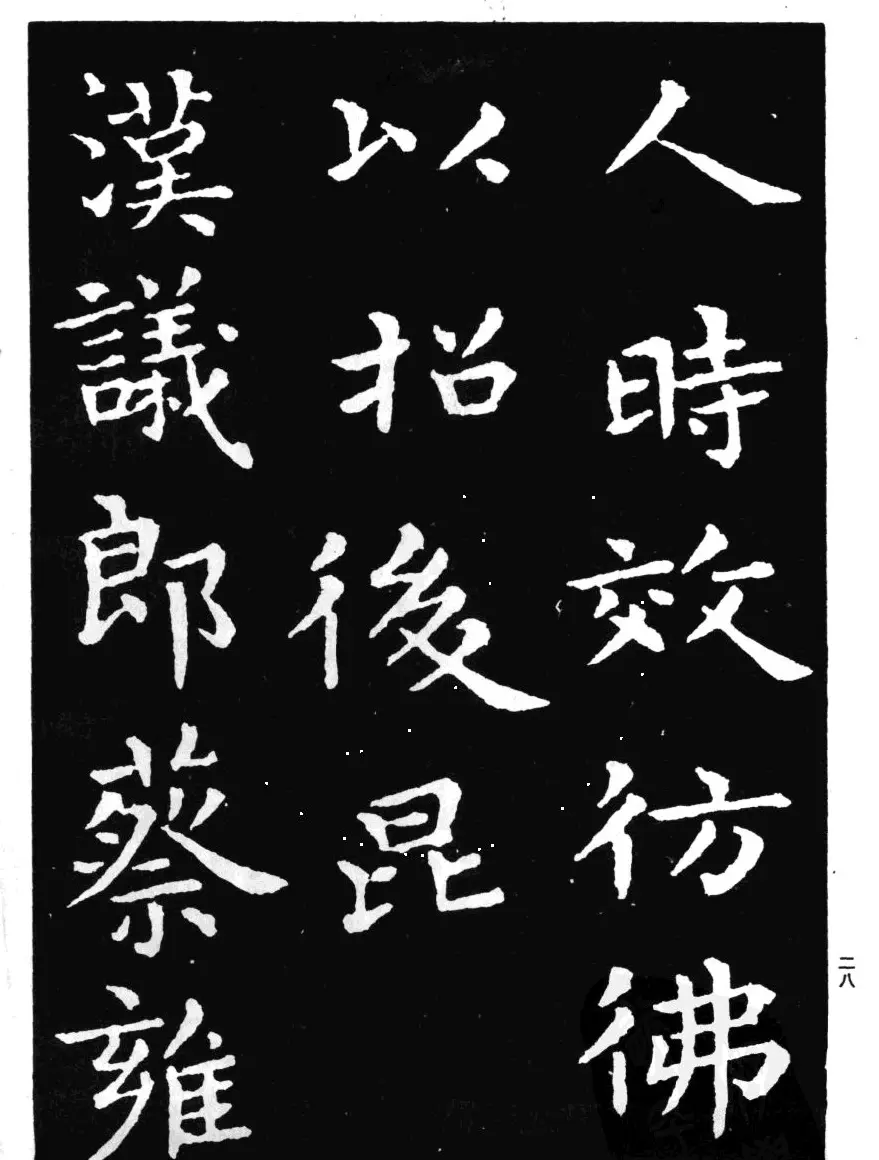 人時效彷彿
以招後昆
漢議郎蔡雍
二八